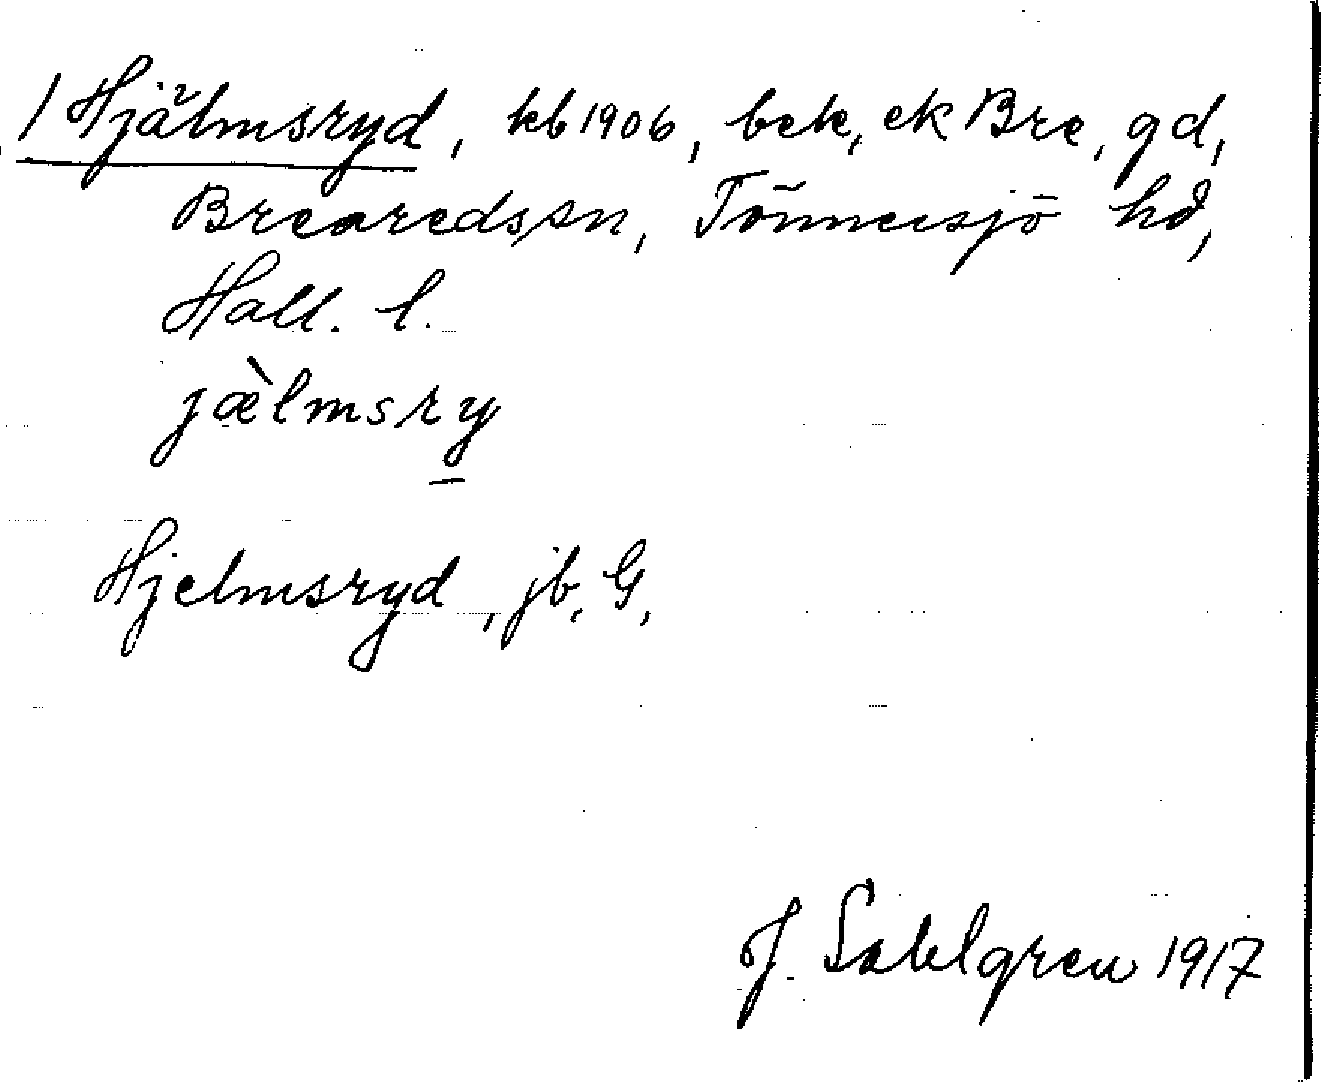 / Hjälmsryd, kb 1906, bek, ek Bre, gd,
Brearedssn, Tönnersjö hd,
Hall. l.
jæ̀lmsry
Hjelmsryd, jb, G,
J. Sahlgren 1917